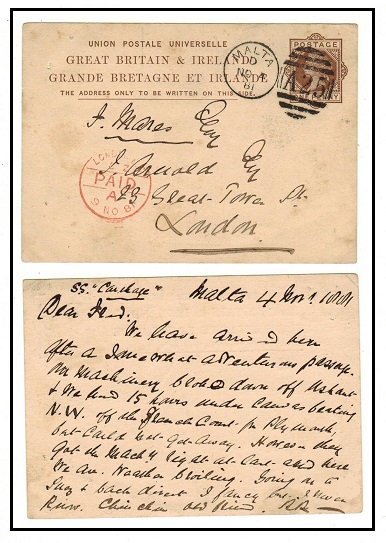 UNION POSTALE UNIVERSELLE
GREAT BRITAIN & IRELAND
GRANDE BRETAGNE ET IRLANDE
THE ADDRESS ONLY TO BE WRITTEN ON THIS SIDE.
MALTA
D
NO 4
81
A25
POSTAGE
PENNY
F. Mares Esq
J. Arnold Esq
23 Great Tower St.
London
PAID
A
NO 81
SS. "Carthage"
Malta 4 Nov. 1881
Dear Fred.
We have arrived here
after a somewhat adventurous passage.
Our machinery broke down off Ushant
& We had 15 hours under Canvas beating
N.W. off the French Coast for Plymouth
but Could not get Away. However they
Got the Mach'y right at last and here
We are. Weather broiling. Going on to
Suez & back direct I fancy but
Chin chin old friend.